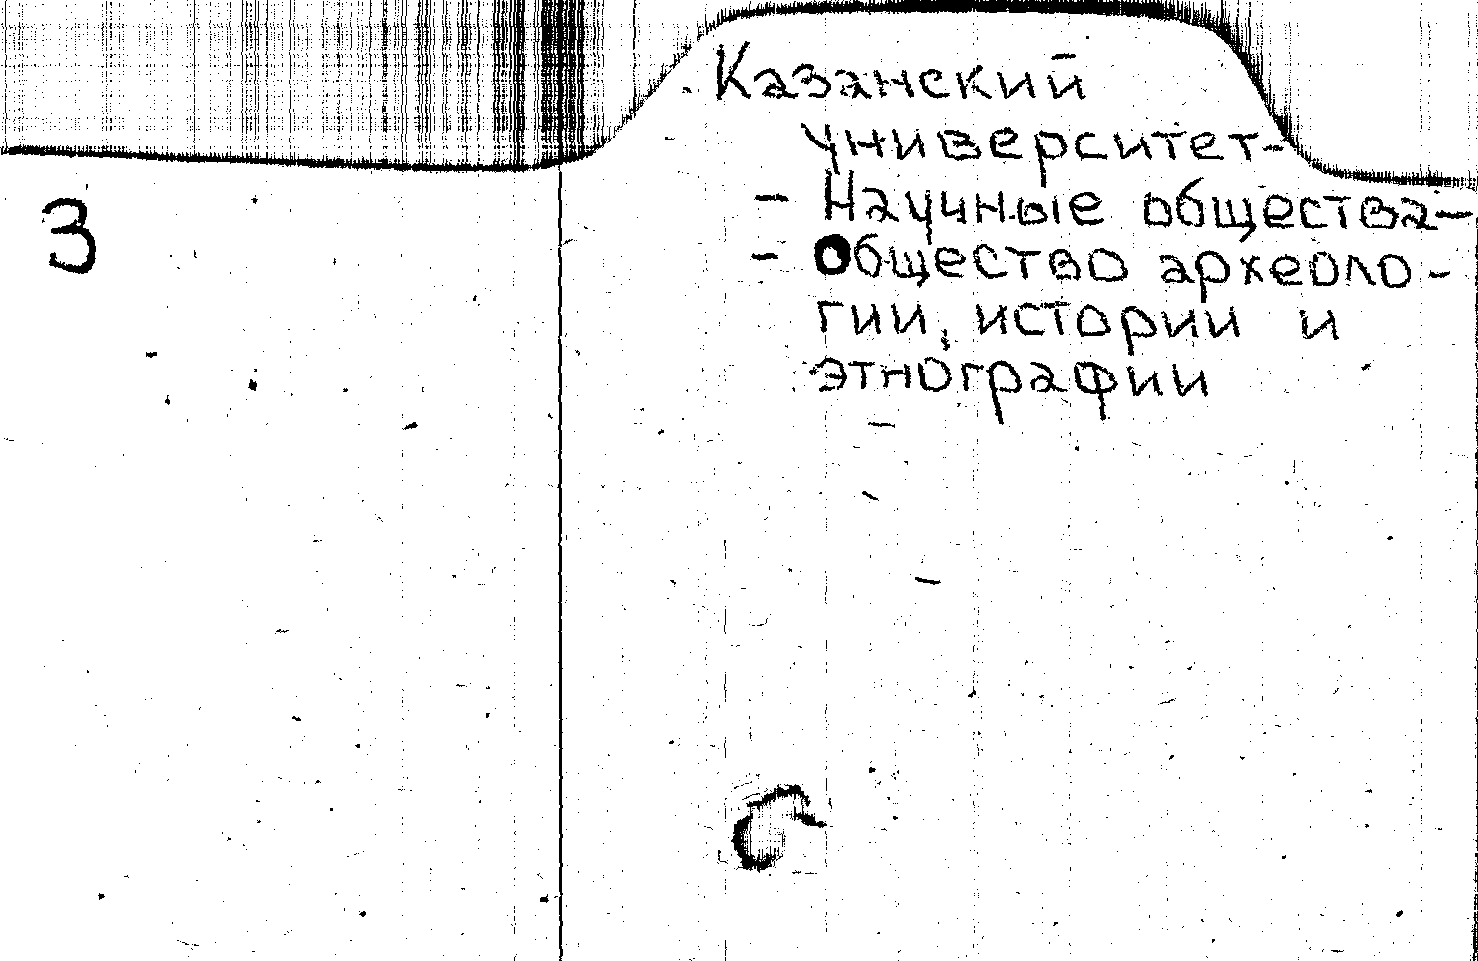 Казанский
университет-
- Научные общества-
3
- Общество археоло-
гии, истории и
этнографии